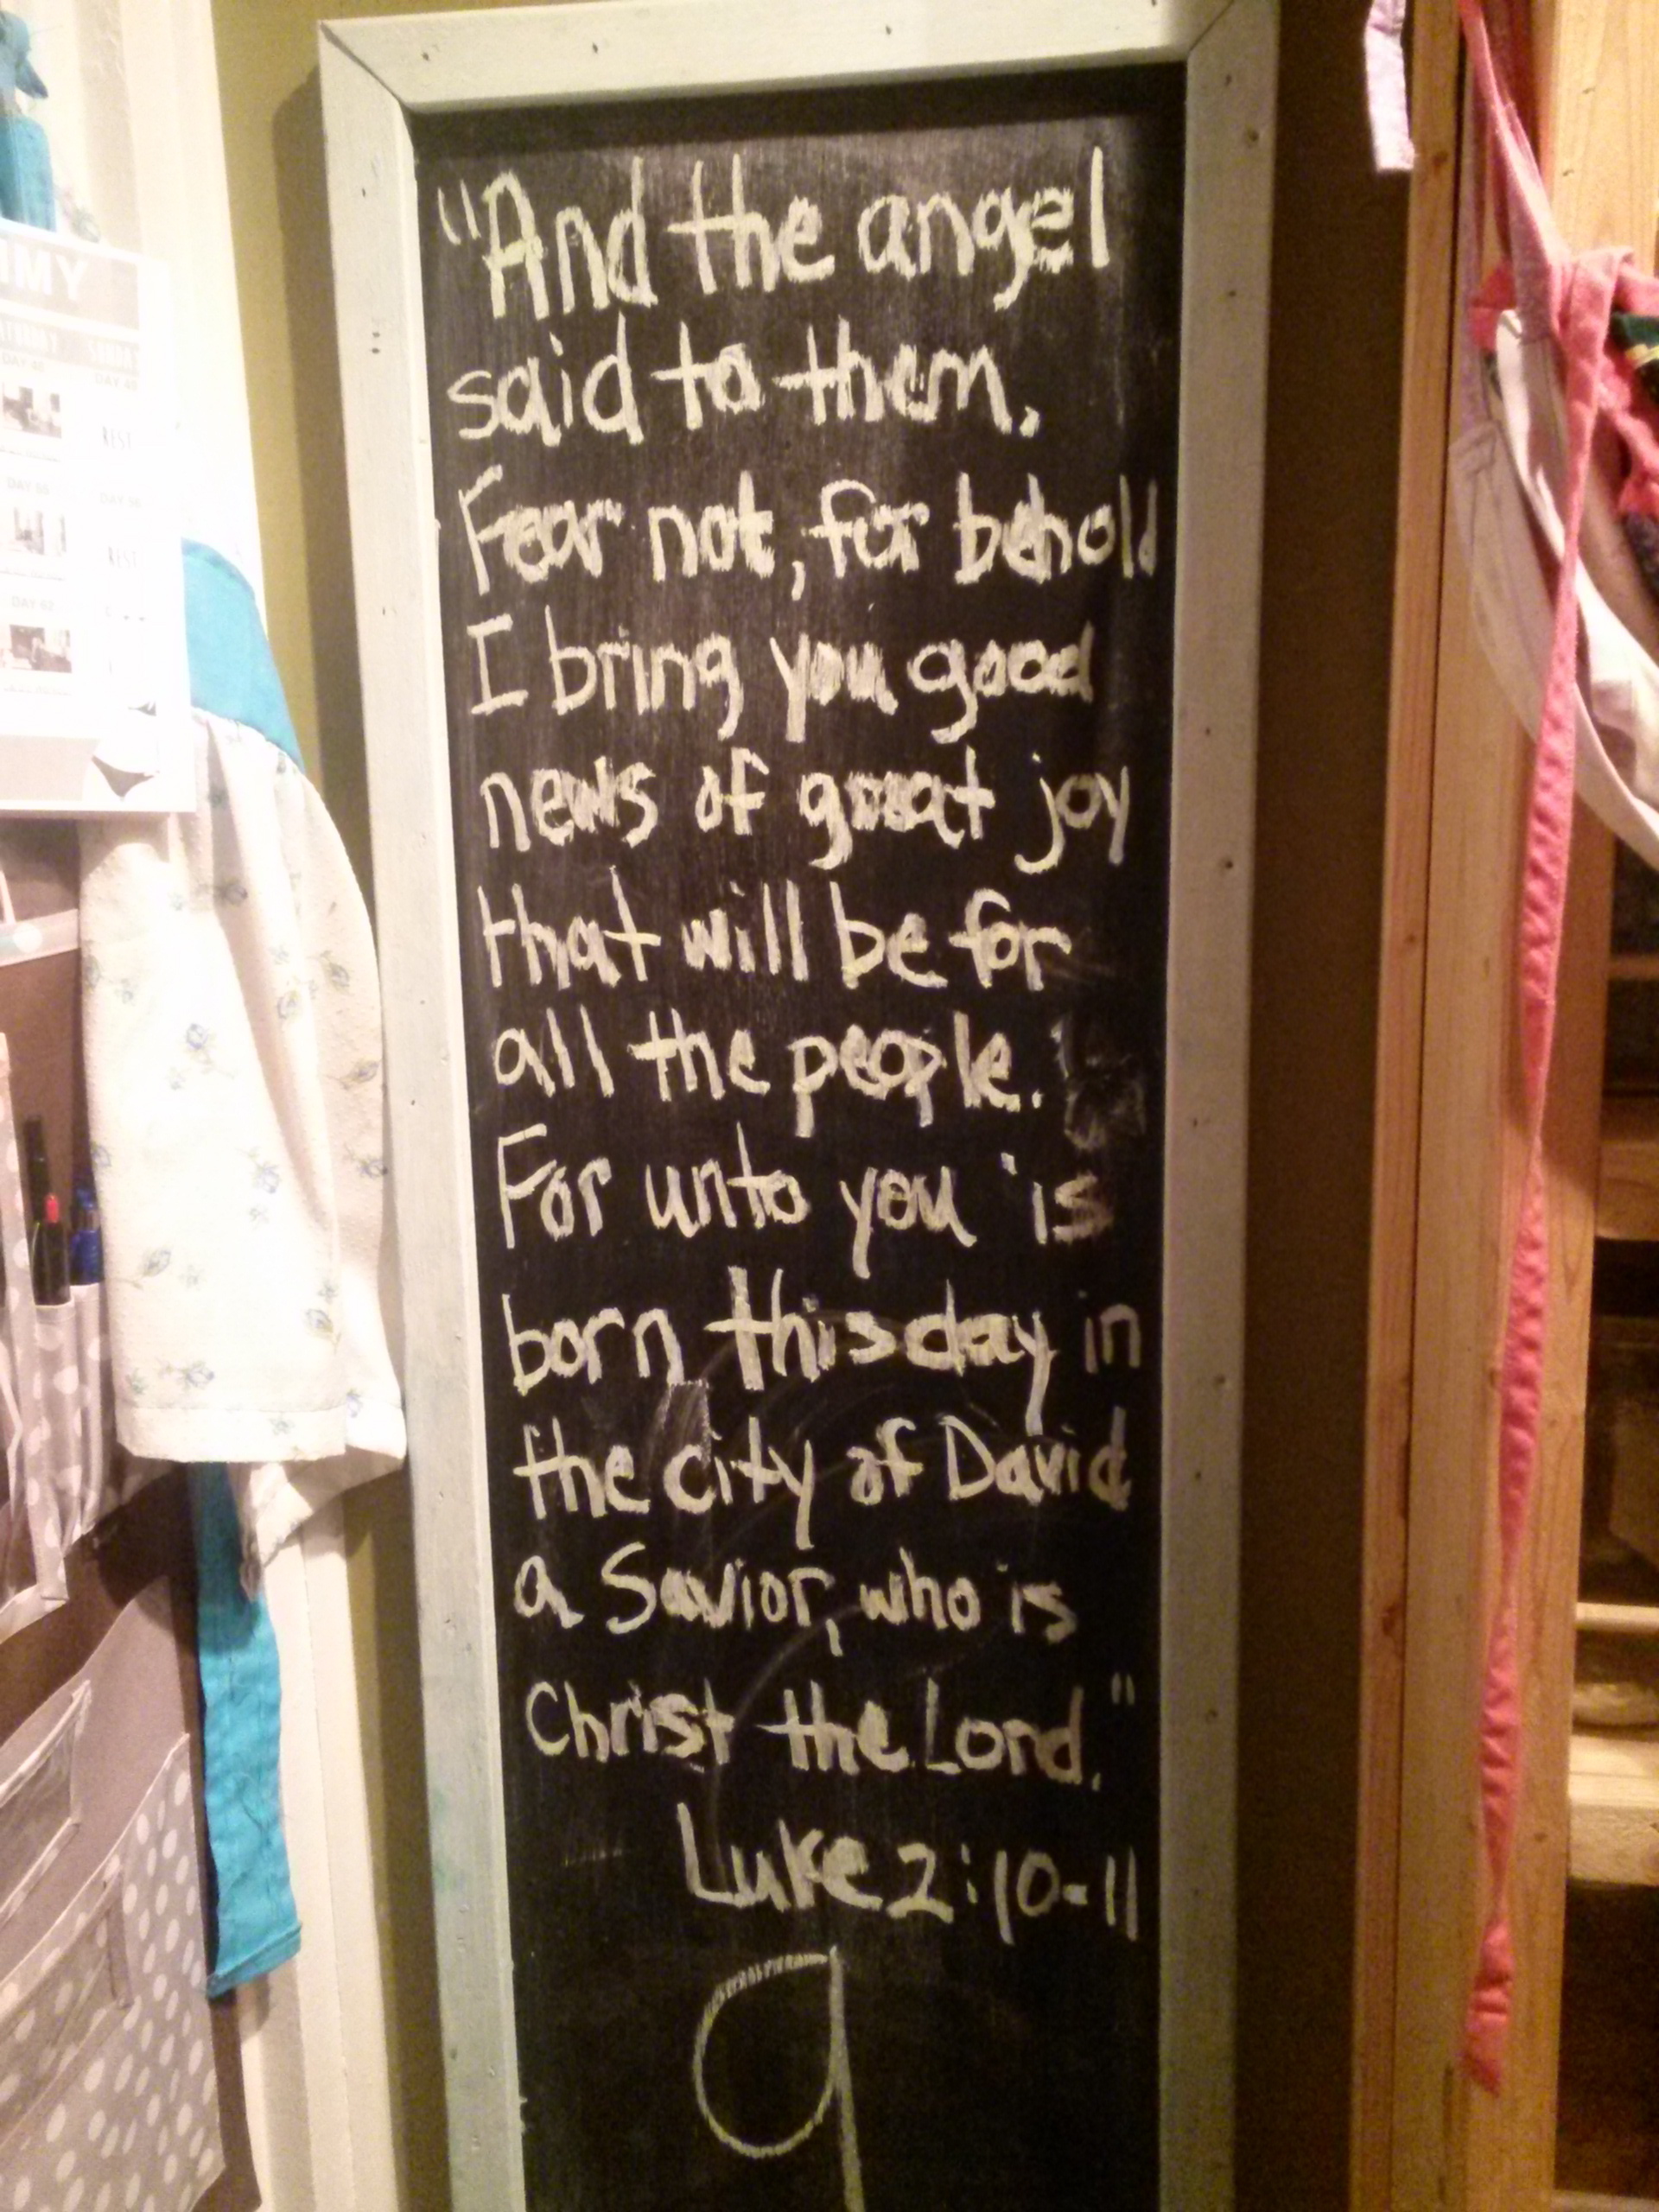 MMY
DAY 48
DAY 49
REST
DAY 55
DAY 56
REST
DAY 62
"And the angel
said to them,
Fear not, for behold
I bring you good
news of great joy
that will be for
all the people.
For unto you is
born this day in
the city of David
a Savior, who is
Christ the Lord."
Luke 2:10-11
9